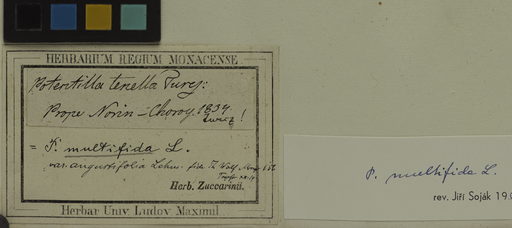 HERBARIUM REGIUM MONACENSE
Potentilla tenella Turcz:
Prope Norin-Choroy. 1834
Turcz!
= P. multifida L.
var. angustifolia Lehm. fide Th. Wolf, Monogr.
Herb. Zuccarinii.
Herbar. Univ. Ludov. Maximil.
P. multifida L.
rev. Jiří Soják 19